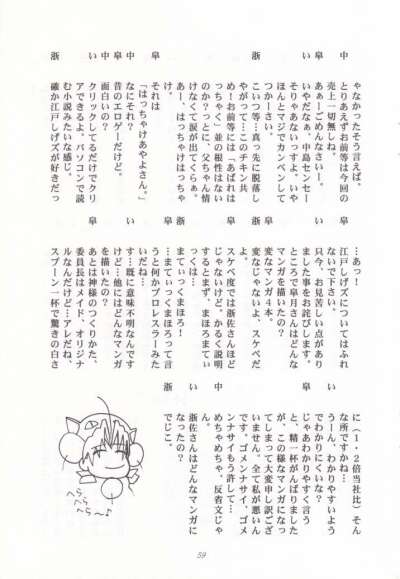 ゃなかったそう言えば、
中 とりあえずお前等は今回の
売上一切無しね。
い あぁーごめんなさいー。
皐 いやだなぁ、中島センセー
そりゃあないっすよ、いや
ほんとマジでカンベンして
つかーさい。
浙 こいつ等…真っ先に脱落し
やがって…このチキン共
め！お前等には「あばれは
っちゃく」並の根性はない
のか？っとに、父ちゃん情
けなくて涙が出てくらぁ。
あー、はっちゃけはっちゃ
け。
皐 それは
「はっちゃけあやよさん。」
中 なにそれ？
皐 昔のエロゲーだけど。
中 面白いの？
い クリックしてるだけでクリ
アできるよ。パソコンで読
む小説みたいな感じ。
浙 確か江戸しげズが好きだっ
…あっ！
皐 江戸しげズについてはふれ
ないで下さい。
い 只今、お見苦しい点があり
ました事をお詫びします。
ところで皐月さんはどんな
マンガを描いたの？
皐 変なマンガ4本。
い 変なじゃないよ、スケベだ
よ。
皐 スケベ度では浙佐さんほど
じゃないけど。かるく説明
するとまず、まほろまてぃ
っくは…
浙 まてぃっくまほろ！
い …まてぃっくまほろって言
うと何かプロレスラーみた
いだね…
す…既に意味不明なんです
けど…他にはどんなマンガ
を描いたの？
皐 あとは神様のつくりかた、
委員長はメイド、オリジナ
ルなんだけど…アレだね、
スプーン一杯で驚きの白さ
に（1・2倍当社比）そん
な所ですかね…
い うーん、わかりやすいよう
でわかりにくいな？
皐 じゃあわかりやすく言う
と、精一杯がんばりました
が、この様なマンガになっ
てしまって大変申し訳ござ
いません。全て私が悪いん
です、ゴメンナサイ、ゴメ
ンナサイもう許して…
い めちゃめちゃ、反省文じゃ
ん。
浙佐さんはどんなマンガに
なったの？
浙 でじこ。
へら
へら
へら～♪
59